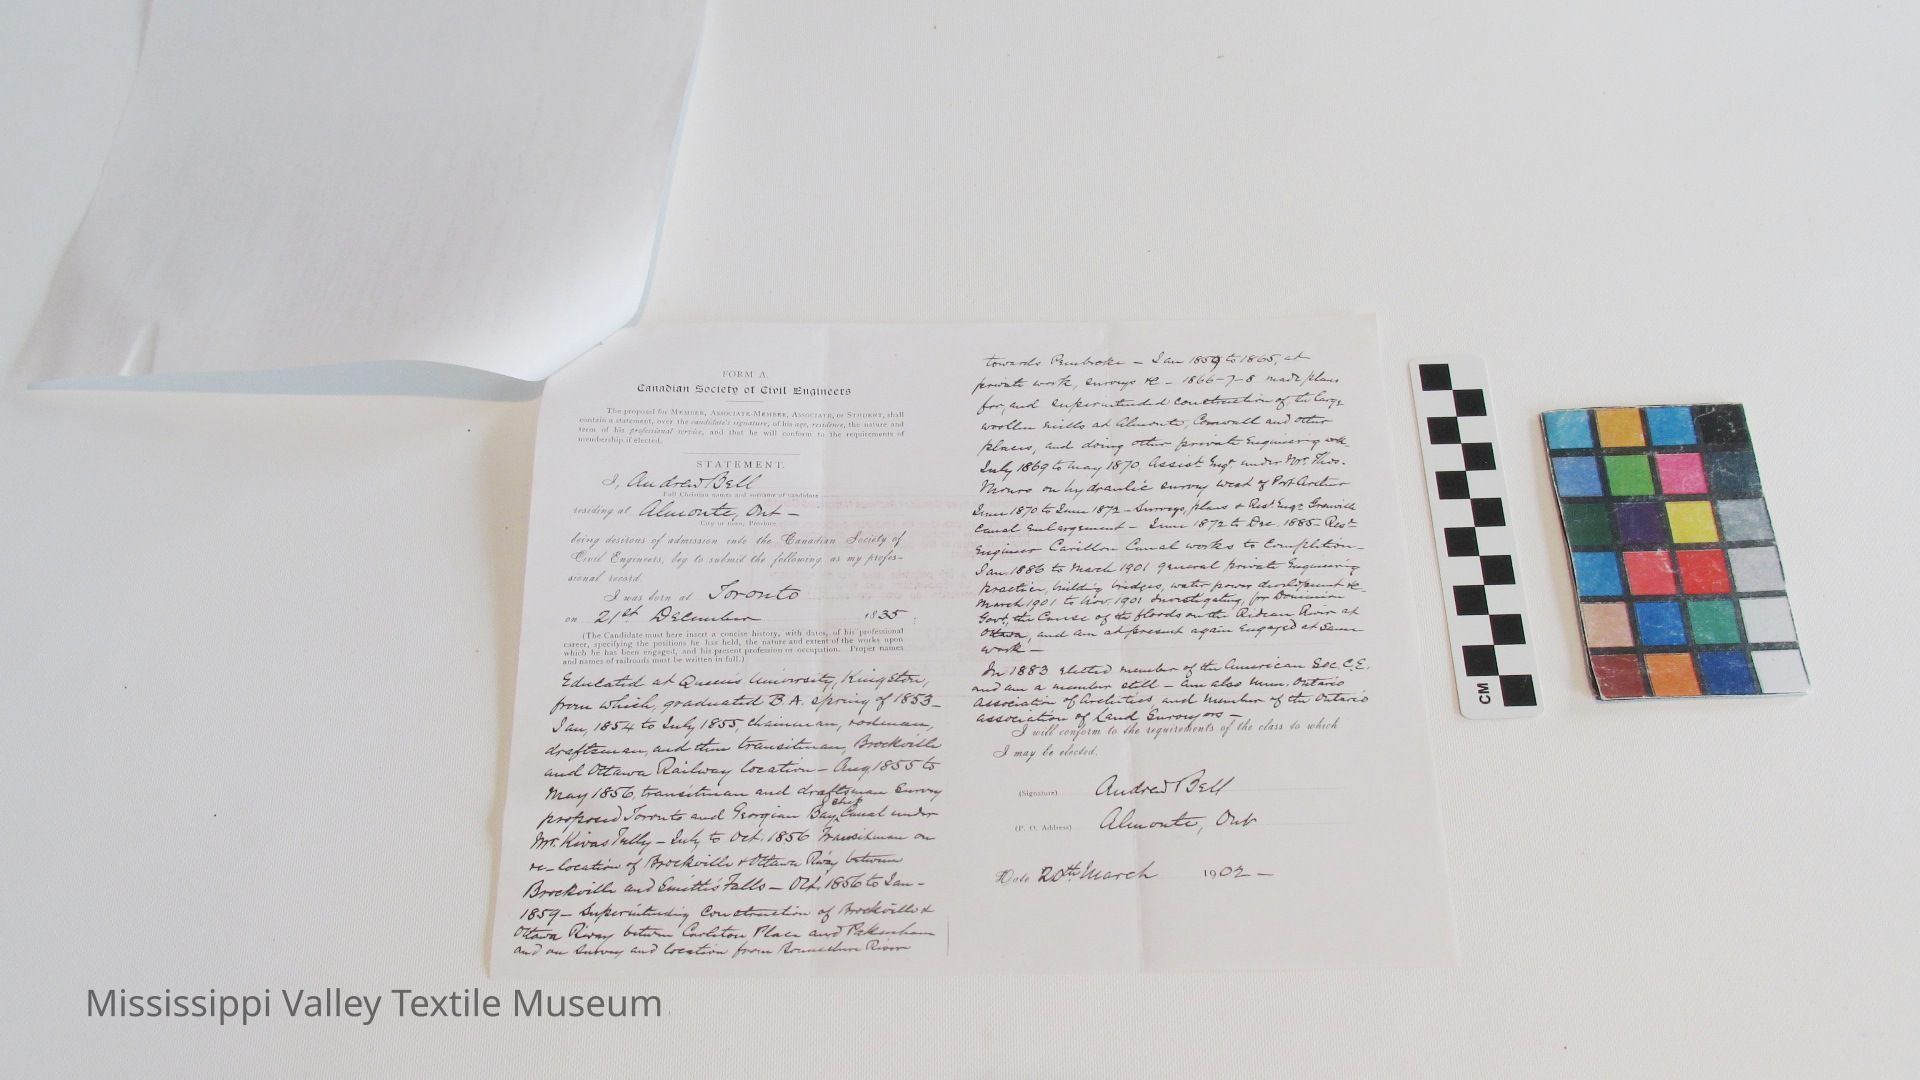 FORM A.
Canadian Society of Civil Engineers
The proposal for MEMBER, ASSOCIATE-MEMBER, ASSOCIATE, or STUDENT, shall
contain a statement, over the candidate's signature, of his age, residence, the nature and
term of his professional service, and that he will conform to the requirements of
membership if elected.
STATEMENT.
I, Andrew Bell
Full Christian names and surname of candidate
residing at Almonte, Ont –
City or town, Province
being desirous of admission into the Canadian Society of
Civil Engineers, beg to submit the following as my profes-
sional record.
I was born at Toronto
on 21st December 1835
(The Candidate must here insert a concise history, with dates, of his professional
career, specifying the positions he has held, the nature and extent of the works upon
which he has been engaged, and his present profession or occupation. Proper names
and names of railroads must be written in full.)
Educated at Queen's University, Kingston,
from which, graduated B.A. spring of 1853 –
Jan, 1854 to July 1855, chainman, rodman,
draftsman, and then transitman, Brockville
and Ottawa Railway location – Aug 1855 to
May 1856, transitman and draftsman Survey
proposed Toronto and Georgian Bay Ship Canal under
Mr. Kivas Tully – July to Oct. 1856 Transitman on
re-location of Brockville & Ottawa R'way between
Brockville and Smith's Falls – Oct. 1856 to Jan –
1859 – Superintending Construction of Brockville &
Ottawa R'way between Carleton Place and Pakenham
and on Survey and location from Bonnechere River
towards Pembroke – Jan 1859 to 1865, at
private work, surveys &c – 1866-7-8 made plans
for, and superintended construction of the large
woollen mills at Almonte, Cornwall and other
places, and doing other private Engineering work
July 1869 to May 1870, Assist. Engr. under Mr. Thos.
Monro on hydraulic survey west of Port Arthur
June 1870 to June 1872 – Surveys, plans & Rest. Engr. Grenville
Canal Enlargement – June 1872 to Dec. 1885 – Rest.
Engineer Carillon Canal works to Completion –
Jan. 1886 to March 1901 general private Engineering
practice, building bridges, water power development &c –
March 1901 to Nov. 1901 Investigating, for Dominion
Govt, the Cause of the floods on the Rideau River at
Ottawa, and am at present again Engaged at Same
work –
In 1883 elected member of the American Soc. C.E.
and am a member still – Am also Mem. Ontario
Association of Architects, and Member of the Ontario
association of Land Surveyors –
I will conform to the requirements of the class to which
I may be elected.
(Signature) Andrew Bell
(P. O. Address) Almonte, Ont
Date 20th March 1902 –
CM
Mississippi Valley Textile Museum